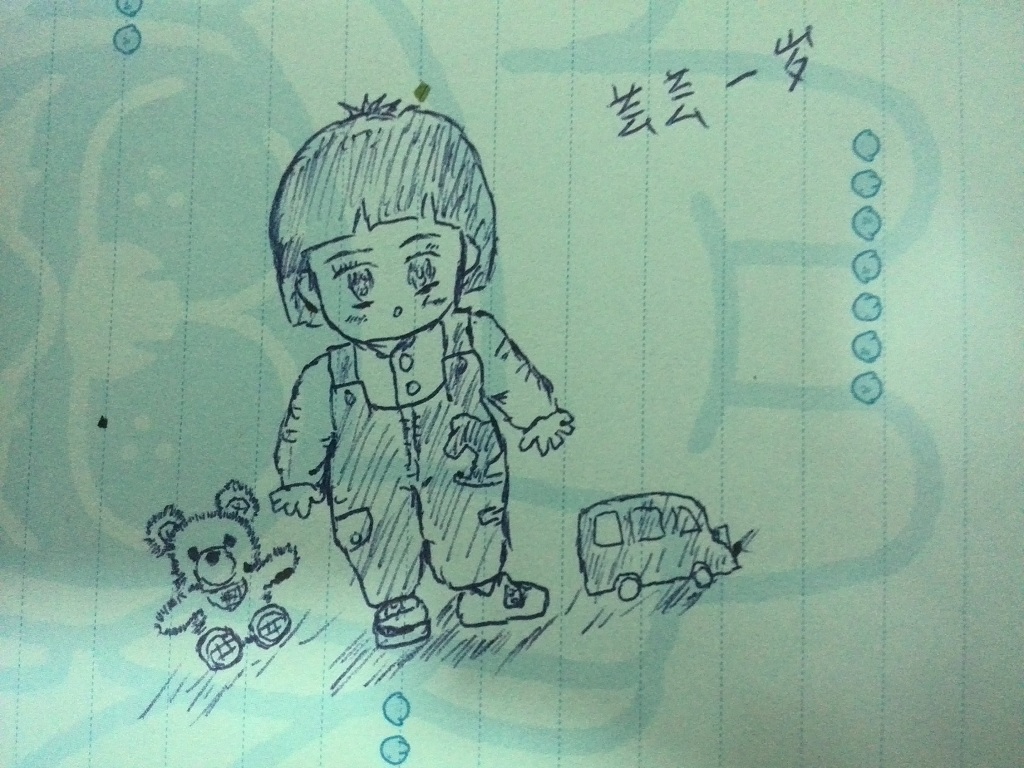 芸芸一岁